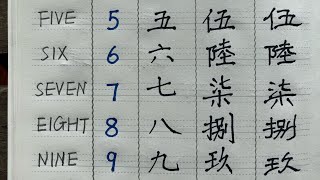 FIVE 5 五 伍 伍
SIX 6 六 陸 陸
SEVEN 7 七 柒 柒
EIGHT 8 八 捌 捌
NINE 9 九 玖 玖